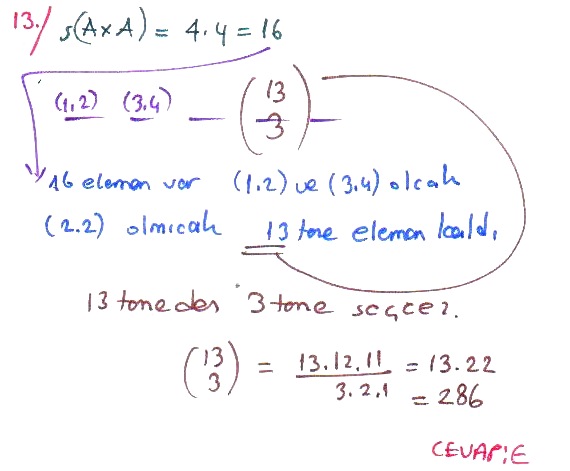 13./ s(A×A) = 4.4 = 16
(1,2) (3.4) (13 3)
16 eleman var (1.2) ve (3.4) olcak
(2.2) olmıcak 13 tane eleman kaldı
13 taneden 3 tane seçcez.
(13 3) = 13.12.11 / 3.2.1 = 13.22
= 286
CEVAP:E